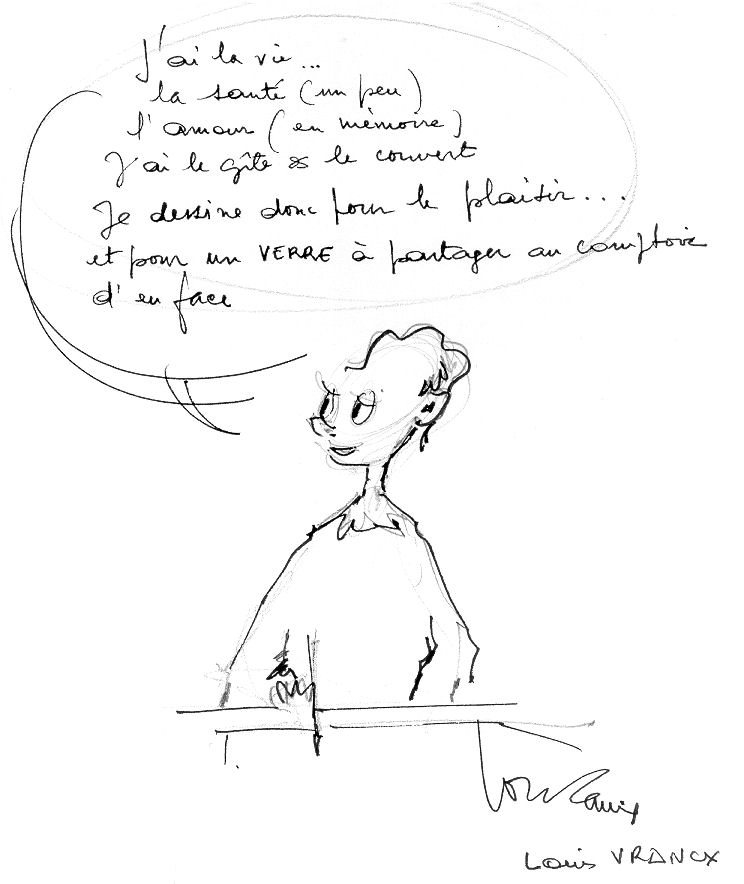 J'ai la vie...
la santé (un peu)
l'amour (en mémoire)
J'ai le gîte & le couvert
Je dessine donc pour le plaisir...
et pour un VERRE à partager au comptoir
d'en face
Louis VRANCX